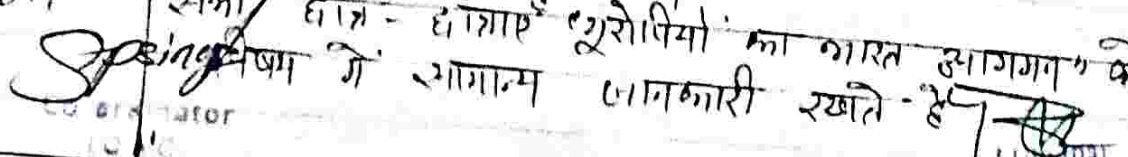 सभी छात्र - छात्राएँ "यूरोपियों का भारत आगमन" के
विषय में सामान्य जानकारी रखते हैं